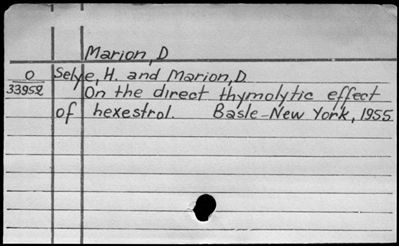 Marion, D
O Selye, H. and Marion, D
33952 On the direct thymolytic effect
of hexestrol. Basle-New York, 1955